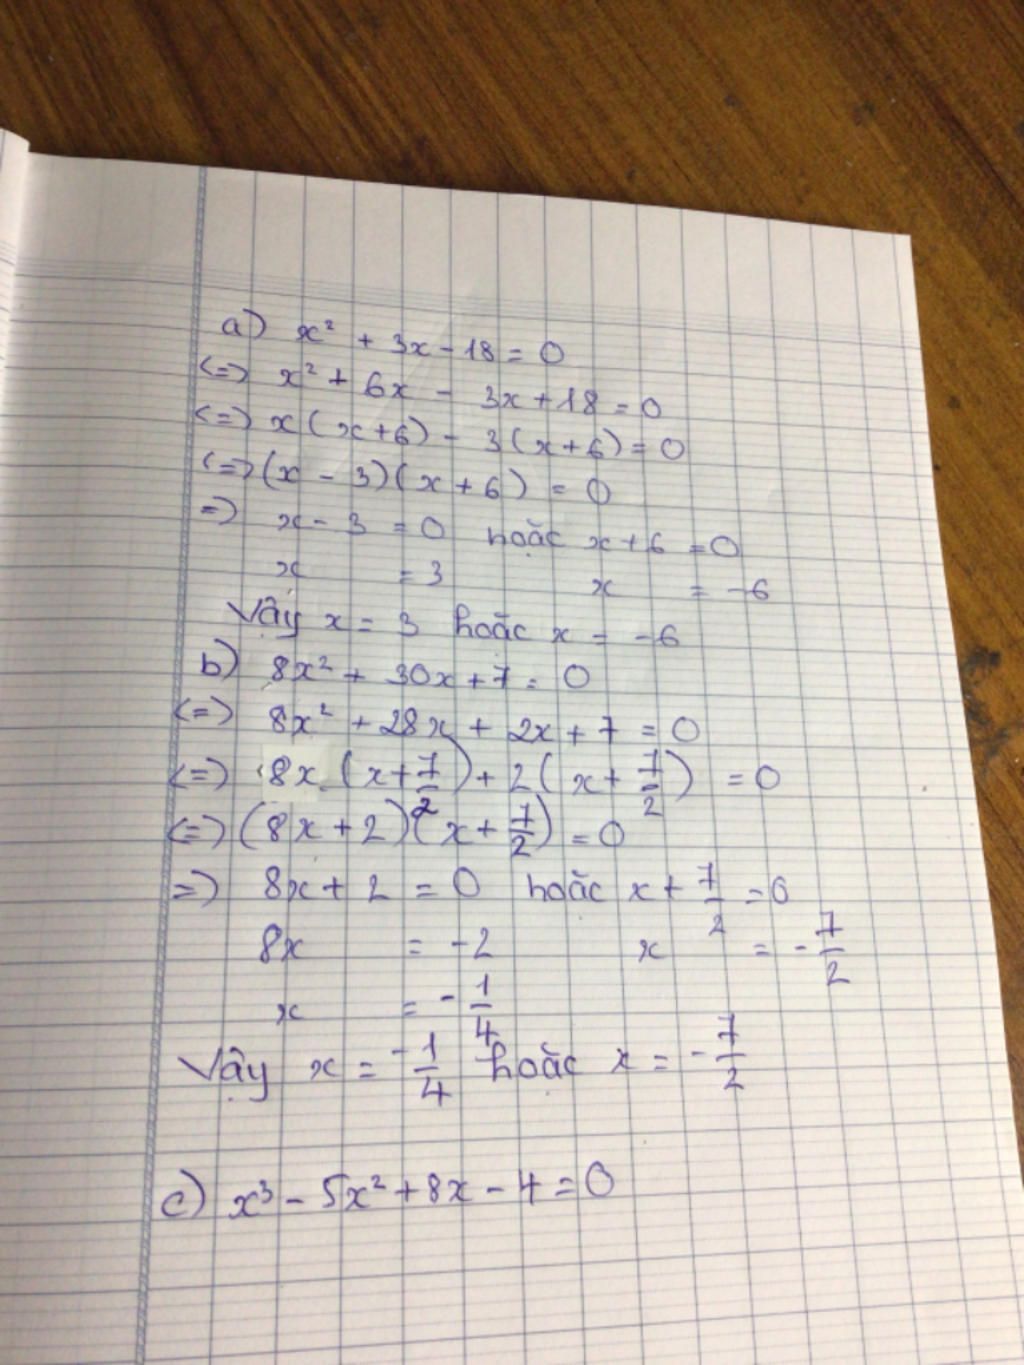 a) x² + 3x - 18 = 0
<=> x² + 6x - 3x + 18 = 0
<=> x(x+6) - 3(x+6) = 0
<=> (x - 3)(x + 6) = 0
=> x - 3 = 0 hoặc x + 6 = 0
x = 3 x = -6
Vậy x = 3 hoặc x = -6
b) 8x² + 30x + 7 = 0
<=> 8x² + 28x + 2x + 7 = 0
<=> 8x (x + 7/2) + 2(x + 7/2) = 0
<=> (8x + 2)(x + 7/2) = 0
=> 8x + 2 = 0 hoặc x + 7/2 = 0
8x = -2 x = -7/2
x = -1/4
Vậy x = -1/4 hoặc x = -7/2
c) x³ - 5x² + 8x - 4 = 0